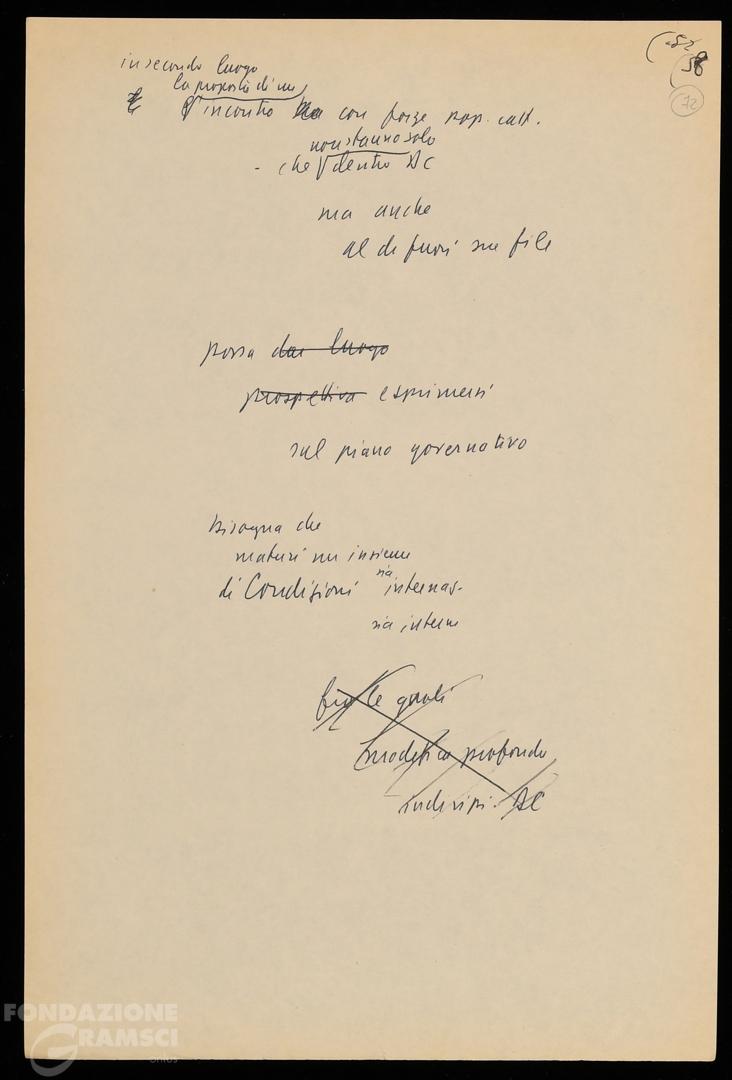 58
72
in secondo luogo
la proposta di un
incontro con forze pop. catt.
non stanno solo
- che dentro DC
ma anche
al di fuori sue file
possa dar luogo
prospettiva esprimersi
sul piano governativo
Bisogna che
maturi un insieme
di Condizioni sia internaz.
sia interne
fra le quali
modifica profonda
indirizzi DC
FONDAZIONE
GRAMSCI
onlus